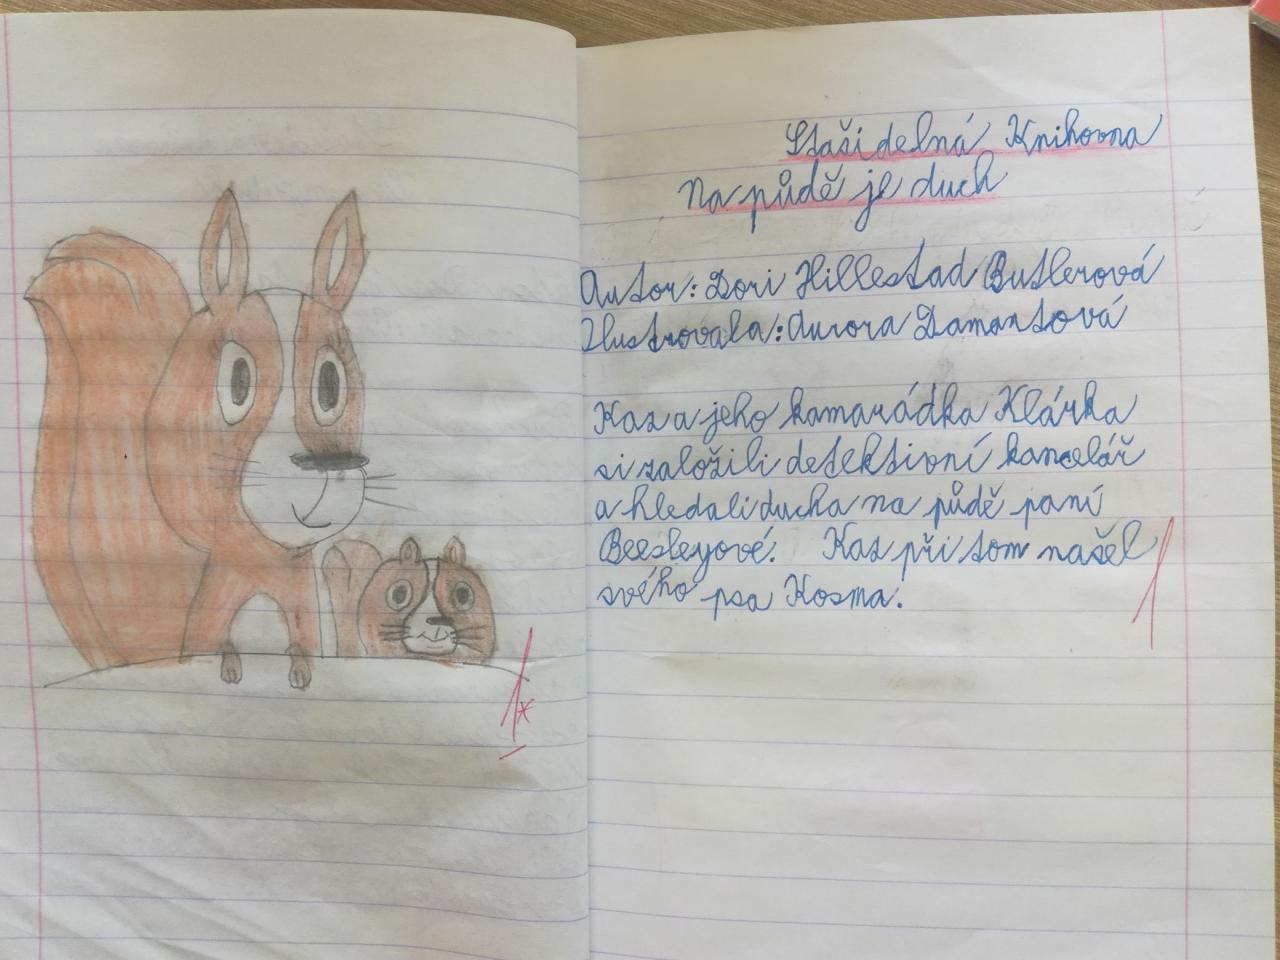 Stašidelná Knihovna
Na půdě je duch
Autor: Dori Hillestad Butlerová
Ilustrovala: Aurora Damantová
Kaz a jeho kamarádka Klárka
si založili detektivní kancelář
a hledali ducha na půdě paní
Beesleyové. Kaz při tom našel
svého psa Kosma.
1
1*